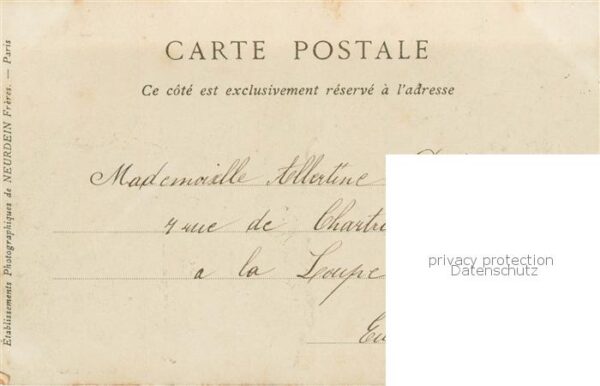 CARTE POSTALE
Ce côté est exclusivement réservé à l'adresse
Mademoiselle Albertine
rue de Chartre
a la Loupe
Eu
privacy protection
Datenschutz
Établissements Photographiques de NEURDEIN Frères. — Paris